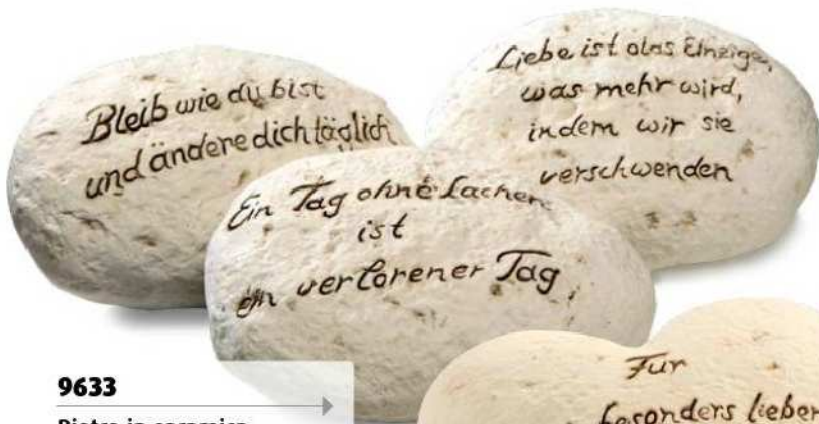 Bleib wie du bist
und ändere dich täglich
Liebe ist das Einzige,
was mehr wird,
indem wir sie
verschwenden
Ein Tag ohne Lachen
ist
ein verlorener Tag
9633
Für
besonders lieben